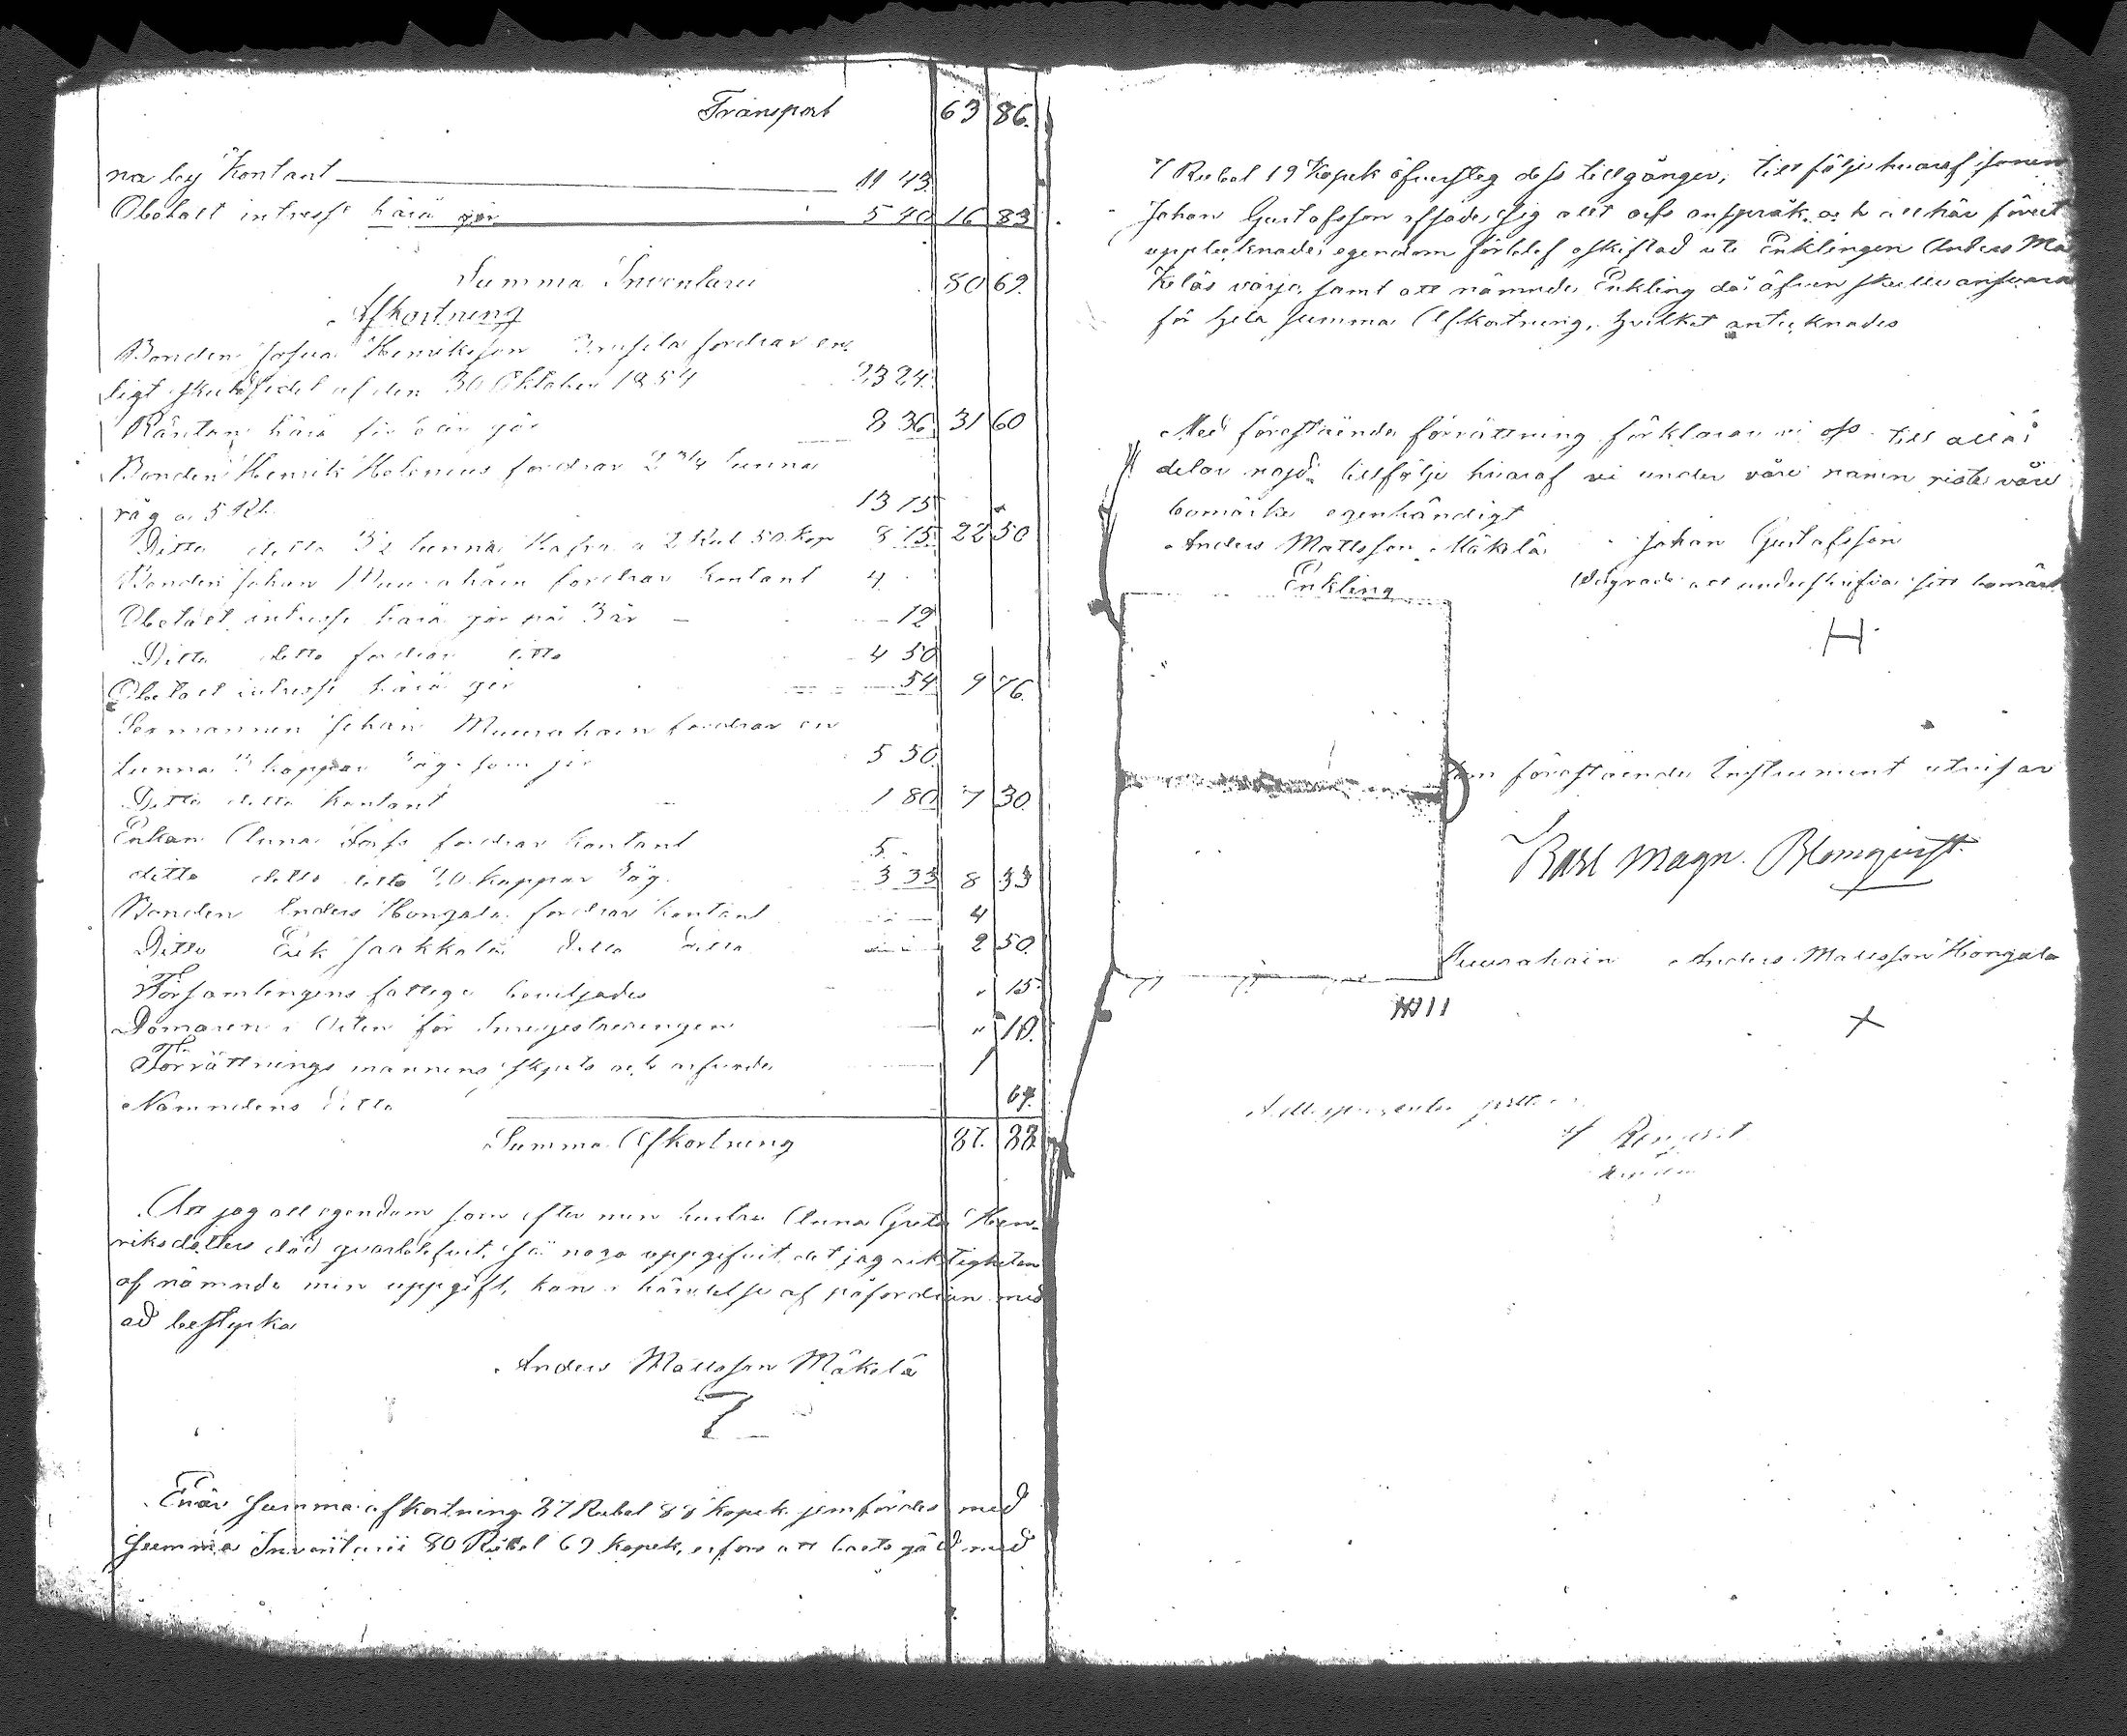 Transport 63 86.
na by Kontant 11 43
Obetalt intresse härå gör 5 40 16 83
Summa Inventarii 80 69.
Afkortning
Bonden Josua Henriksson fordrar en-
ligt skuldsedel af den 30 Oktober 1854 23 24.
Räntan härå för 6 år gör 8 36 31 60
Bonden Henrik Helenius fordrar 2 3/4 tunna
råg a 5 Rb. 13 75
Ditto ditto 3½ tunna Hafra a 2 Rub 50 Kop 8 75 22 50
Bonden Johan Muurahain fordrar kontant 4
Obetalt intresse härå gör på 3 år 72
Ditto ditto fordrar ditto 4 50
Obetalt intresse härå gör 54 9 76.
Johan Muurahain fordrar en
tunna 3 kappar Råg som gör 5 50
Ditto ditto kontant 1 80 7 30.
Enkan Anna fordrar kontant 5
ditto ditto ditto 20 kappar Råg 3 33 8 33
Bonden Anders Hongala fordrar kontant 4
Ditto Erik Jaakkola ditto ditto 2 50.
Församlingens fattige beviljades " 15
Domaren i Orten för Inregistreringen " 10.
Förrättnings mannens skjuts och arfvode 1
Nämndens ditto 64.
Summa Afkortning 87. 88
Att jag all egendom som efter min hustru Anna Greta Hen-
riksdotters död qvarblefvit, så noga uppgifvit att jag riktigheten
af nämnde min uppgift, kan i händelse af påfordran med
ed bestyrka
Anders Mattsson Mäkelä
Enär Summa afkortning 87 Rubel 88 Kopek jemfördes med
Summa Inventarii 80 Rubel 69 Kopek, erfors att boets gäld med
7 Rubel 19 Kopek öfversteg dess tillgångar, till följe hvaraf sonen
Johan Gustafsson afsade sig allt arfs anspråk och all här förut
upptecknade egendom förblef oskiftad uti Enklingen Anders Mä
keläs värjo, samt att nämnde Enkling då äfven skulle ansvara
för hela summa Afkortning, hvilket antecknades
Med förestående förrättning förklarar vi oss till alla
delar nöjd tillfölje hvaraf vi under våre namn rista våre
bomärke egenhändigt
Anders Mattsson Mäkelä Johan Gustafsson
Enkling Vägrade att underskrifva sitt bomärk
H
förestående Instrument utvisar
Karl Magn. Blomqvist
Muurahain Anders Mattsson Hongala
X